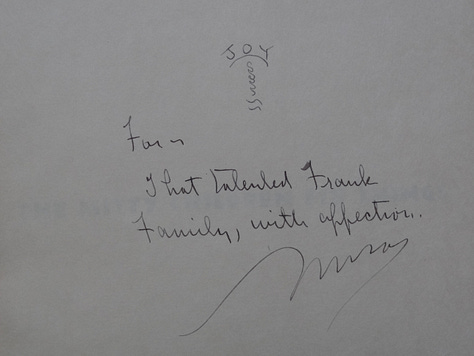 JOY
For
That talented Frank
Family, with affection.